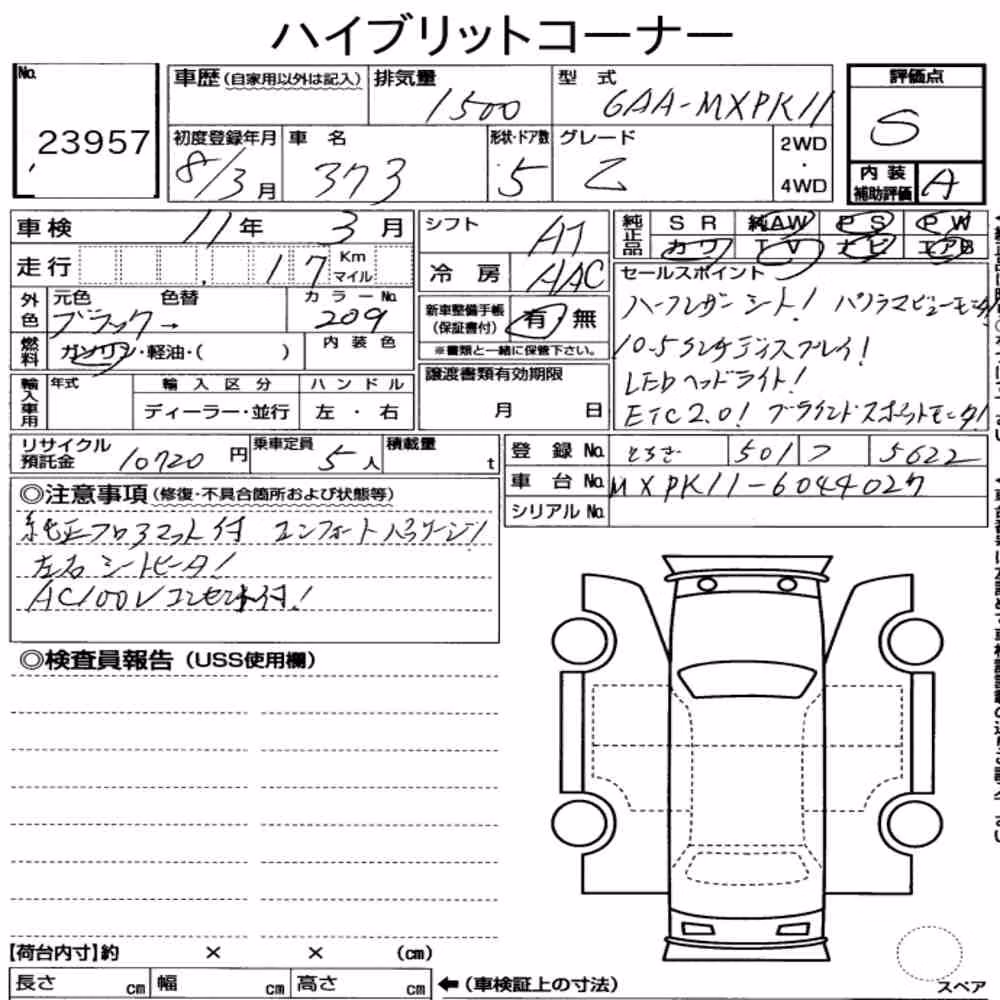 ハイブリットコーナー
No.
23957
車歴(自家用以外は記入)
排気量
1500
型 式
6AA-MXPK11
評価点
S
初度登録年月
8/3月
車 名
形状・ドア数
5
グレード
Z
2WD
・
4WD
内装
補助評価
A
車検 11年 3月
シフト
AT
純正品
SR 純AW PS PW
カワ TV ナビ エアB
走行 17 Km
マイル
冷 房
AAC
セールスポイント
外色
元色 色替 カラーNo.
ブラック→ 209
新車整備手帳
(保証書付)
有 無
※書類と一緒に保管下さい。
ハーフレザーシート! パノラマビューモニタ!
10.5インチディスプレイ!
LEDヘッドライト!
ETC2.0! ブラインドスポットモニタ!
燃料
ガソリン・軽油・( )
内装色
輸入車用
年式
輸入区分
ハンドル
ディーラー・並行
左・右
譲渡書類有効期限
月 日
リサイクル
預託金
10720円
乗車定員
5人
積載量
t
登 録 No.
とちぎ 501 フ 5622
車 台 No.
MXPK11-6044027
シリアル No.
◎注意事項(修復・不具合箇所および状態等)
純正フロアマット付 コンフォートパッケージ!
左右シートヒータ!
AC100Vコンセント付!
◎検査員報告(USS使用欄)
【荷台内寸】約 × × (cm)
長さ cm 幅 cm 高さ cm
←(車検証上の寸法)
スペア